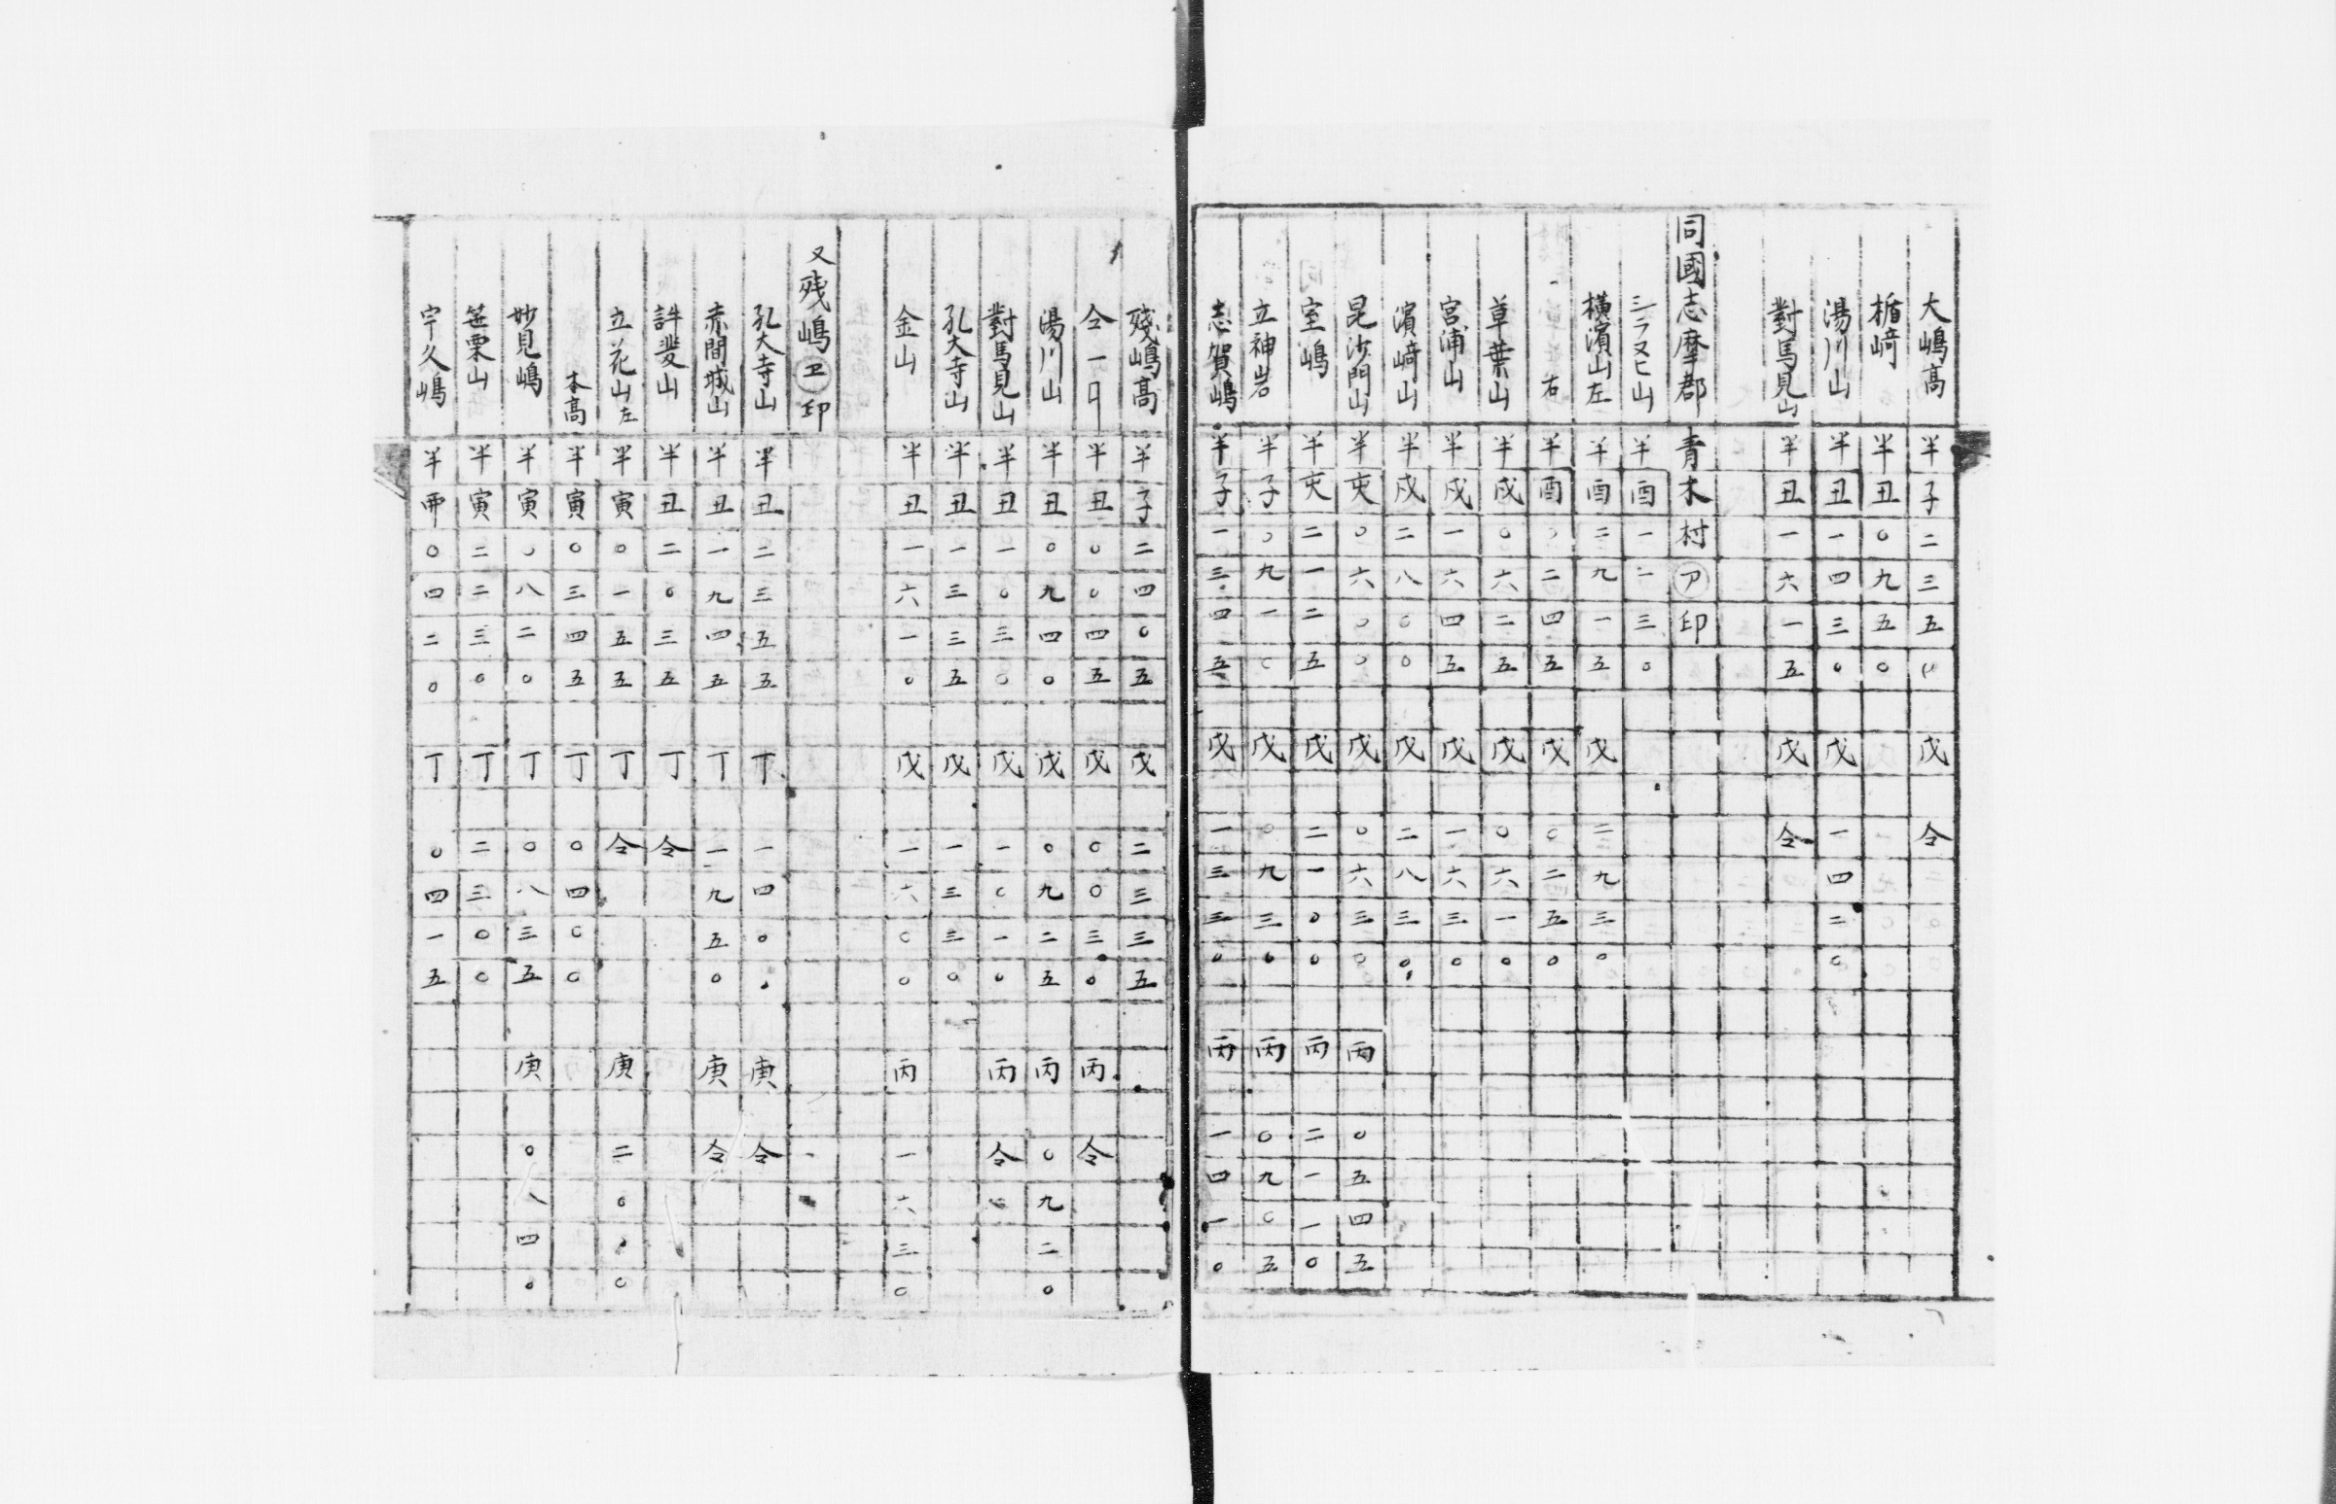 大嶋髙 半子二三五〇 戊 令
楯﨑 半丑〇九五〇
湯川山 半丑一四三〇 戊 一四二〇
對馬見山 半丑一六一五 戊 令
同國志摩郡 青木村㋐印
シラヌヒ山 半酉一二三〇
横濱山左 半酉二九一五 戊 二九三〇
〃右 半酉〇二四五 戊 〇二五〇
草葉山 半戍〇六二五 戊 〇六一〇
宮浦山 半戍一六四五 戊 一六三〇
濵﨑山 半戍二八〇〇 戊 二八三〇
昆沙門山 半亥〇六〇〇 戊 〇六三〇 丙 〇五四五
室嶋 半亥二一二五 戊 二一〇〇 丙 二一一〇
立神岩 半子〇九一〇 戊 〇九三〇 丙 〇九〇五
志賀嶋 半子一三四五 戊 一三三〇 丙 一四一〇
殘嶋髙 半子二四〇五 戊 二三三五
仝一口 半丑〇〇四五 戊 〇〇三〇 丙 令
湯川山 半丑〇九四〇 戊 〇九二五 丙 〇九二〇
對馬見山 半丑一〇三〇 戊 一〇一〇 丙 令
孔大寺山 半丑一三三五 戊 一三三〇
金山 半丑一六一〇 戊 一六〇〇 丙 一六三〇
又残嶋㋓印
孔大寺山 半丑二三五五 丁 一四〇〇 庚 令
赤間城山 半丑一九四五 丁 一九五〇 庚 令
許斐山 半丑二〇三五 丁 令
立花山左 半寅〇一五五 丁 令 庚 二〇〇〇
本髙 半寅〇三四五 丁 〇四〇〇
妙見嶋 半寅〇八二〇 丁 〇八三五 庚 〇八四〇
笹栗山 半寅二二三〇 丁 二三〇〇
宇久嶋 半卯〇四二〇 丁 〇四一五